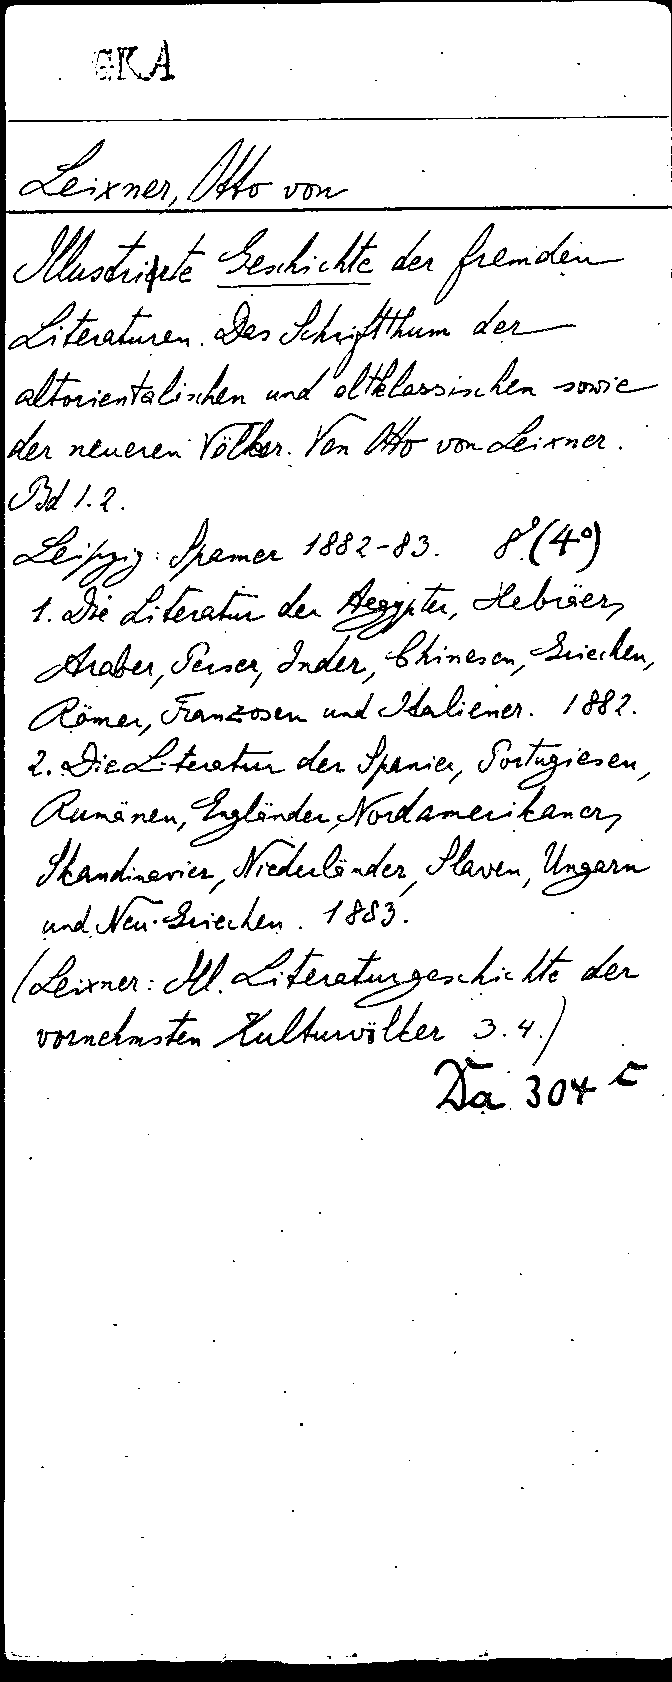 GKA
Leixner, Otto von
Illustrirte Geschichte der fremden
Literaturen. Das Schriftthum der
altorientalischen und altklassischen sowie
der neueren Völker. Von Otto von Leixner.
Bd 1.2.
Leipzig: Spamer 1882-83. 8°(4°)
1. Die Literatur der Aegypter, Hebräer,
Araber, Perser, Inder, Chinesen, Griechen,
Römer, Franzosen und Italiener. 1882.
2. Die Literatur der Spanier, Portugiesen,
Rumänen, Engländer, Nordamerikaner,
Skandinavier, Niederländer, Slaven, Ungarn
und Neu-Griechen. 1883.
(Leixner: Ill. Literaturgeschichte der
vornehmsten Kulturvölker 3.4.)
Da 304 c